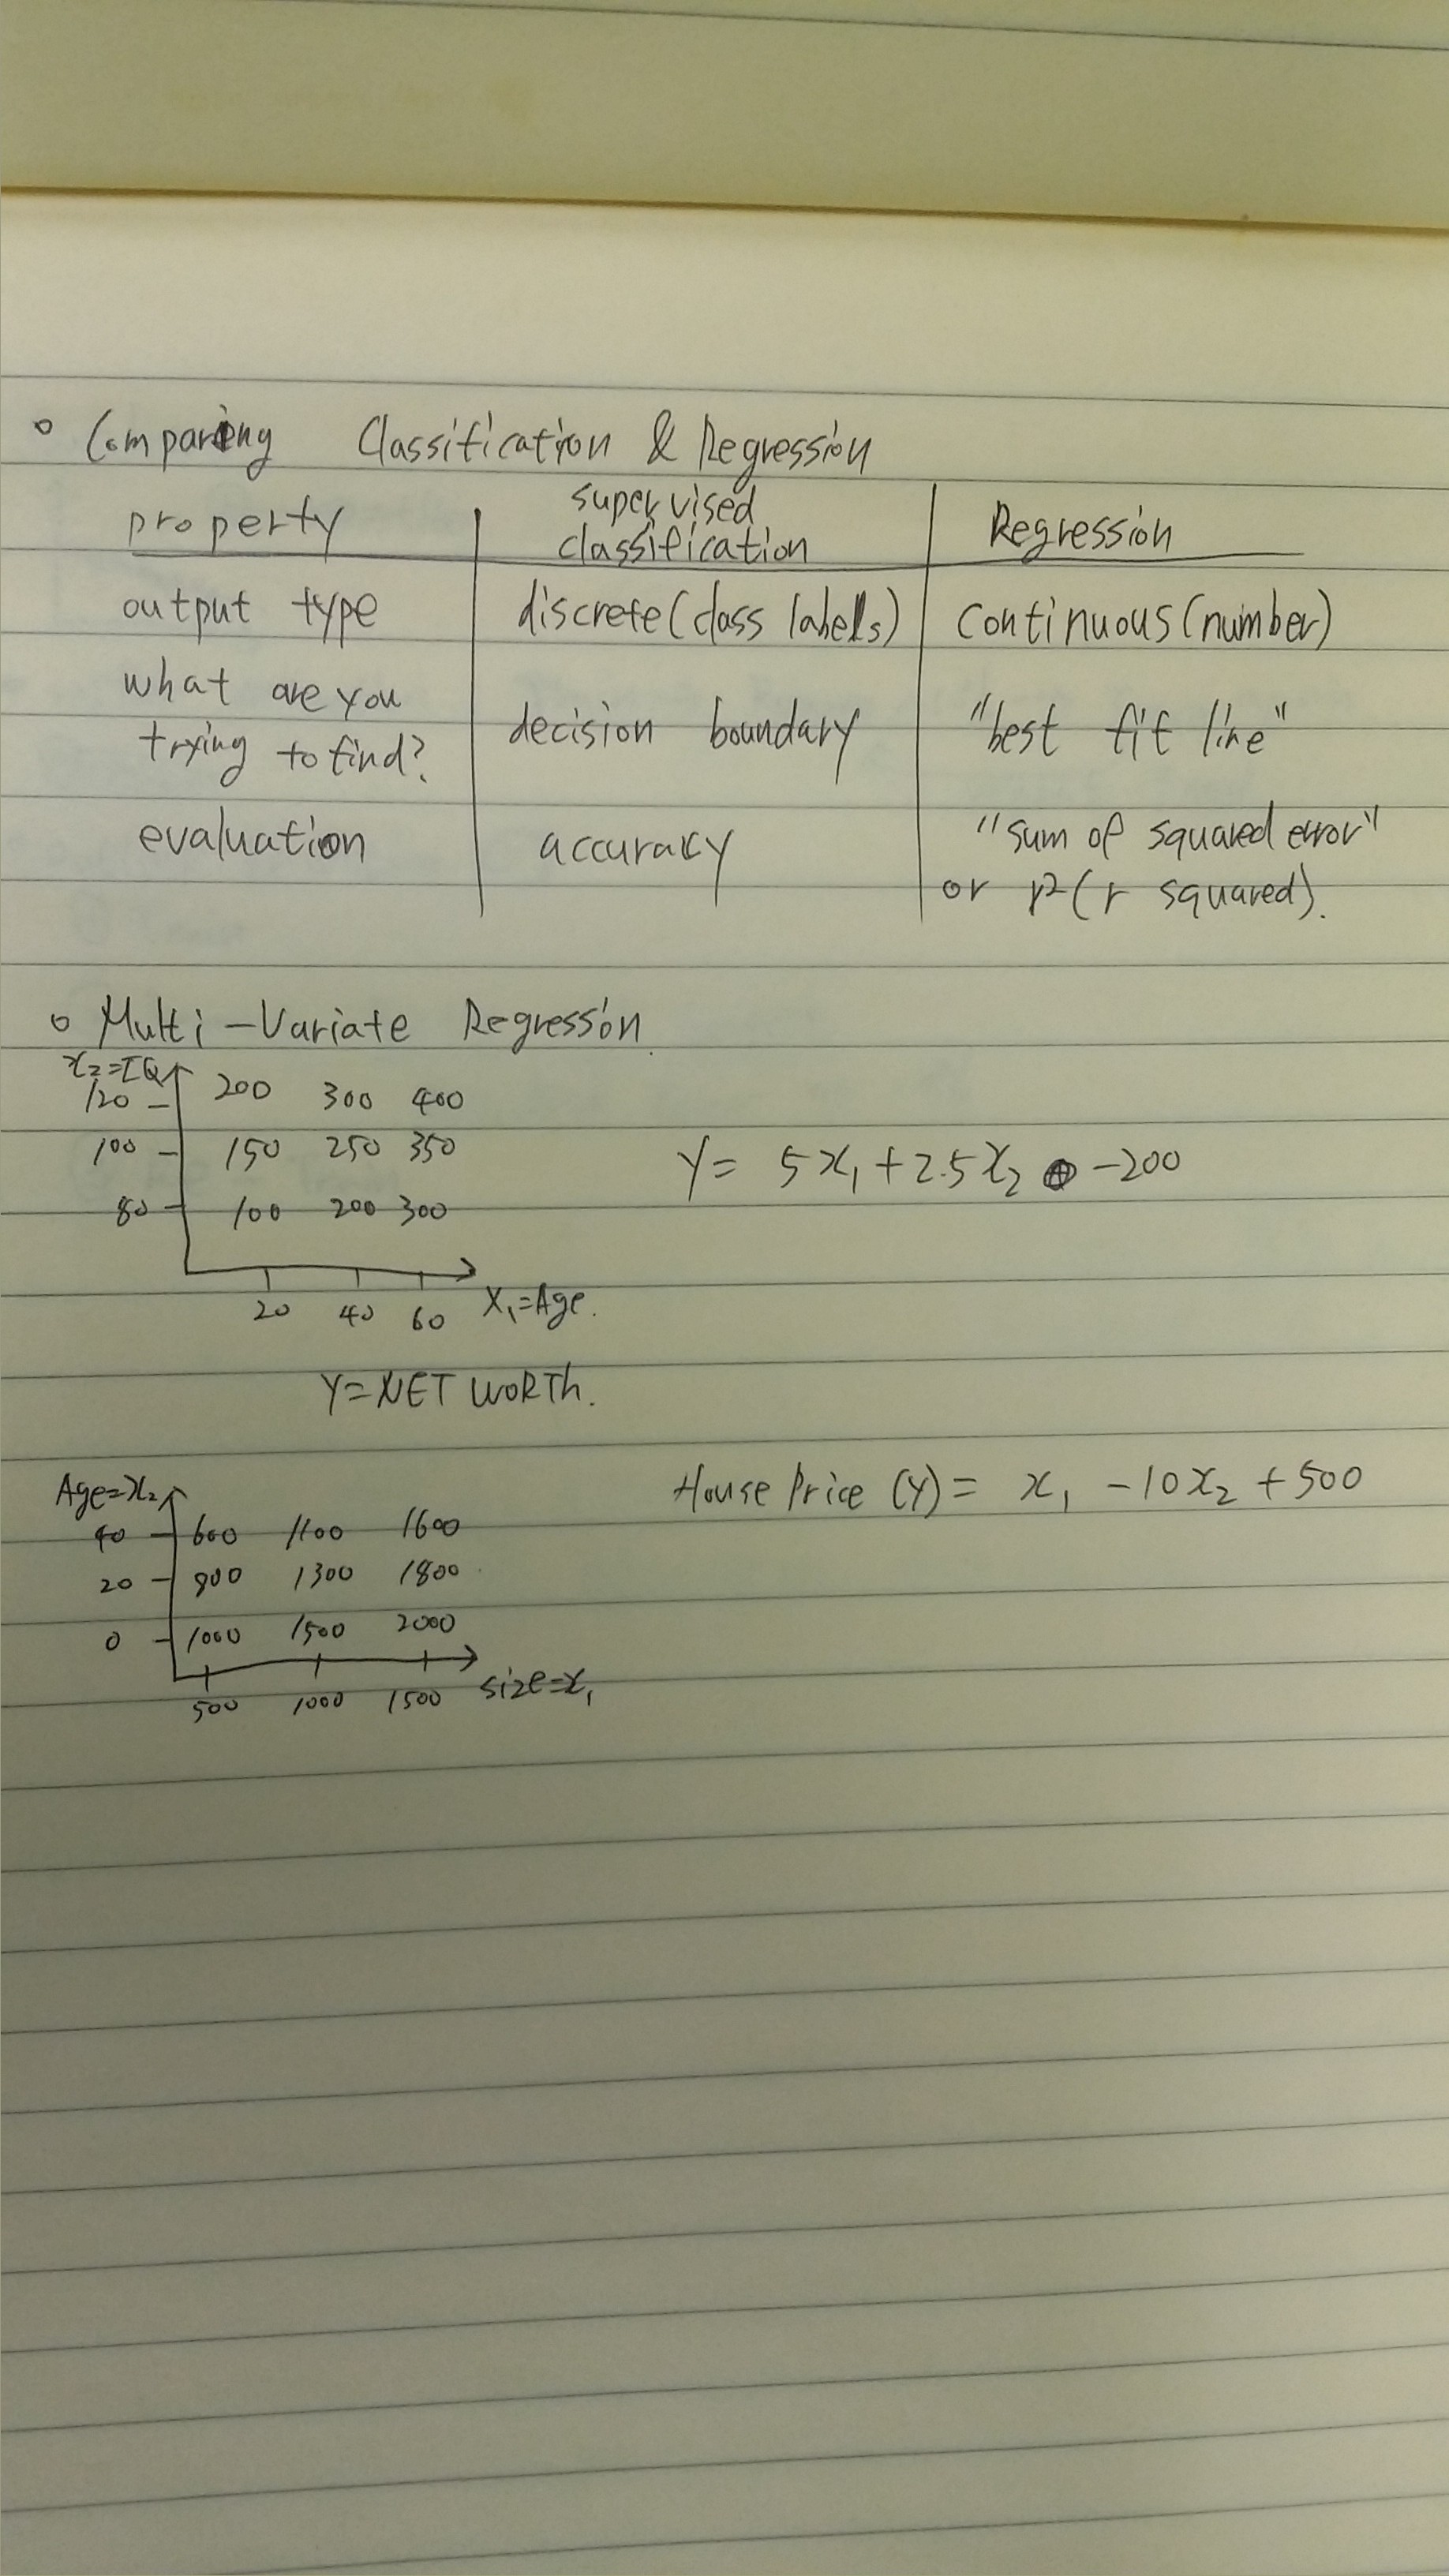 Comparing Classification & Regression
property supervised classification Regression
output type discrete(class labels) continuous(number)
what are you trying to find? decision boundary "best fit line"
evaluation accuracy "sum of squared error" or r²(r squared).
Multi-Variate Regression.
x₂=IQ
120 200 300 400
100 150 250 350
80 100 200 300
20 40 60 X₁=Age.
Y= 5x₁+2.5x₂ -200
Y=NET WORTh.
Age=x₂
40 600 1100 1600
20 1300 1800
0 1000 1500 2000
500 1000 1500 size=x₁
House Price (Y)= x₁ -10x₂ +500